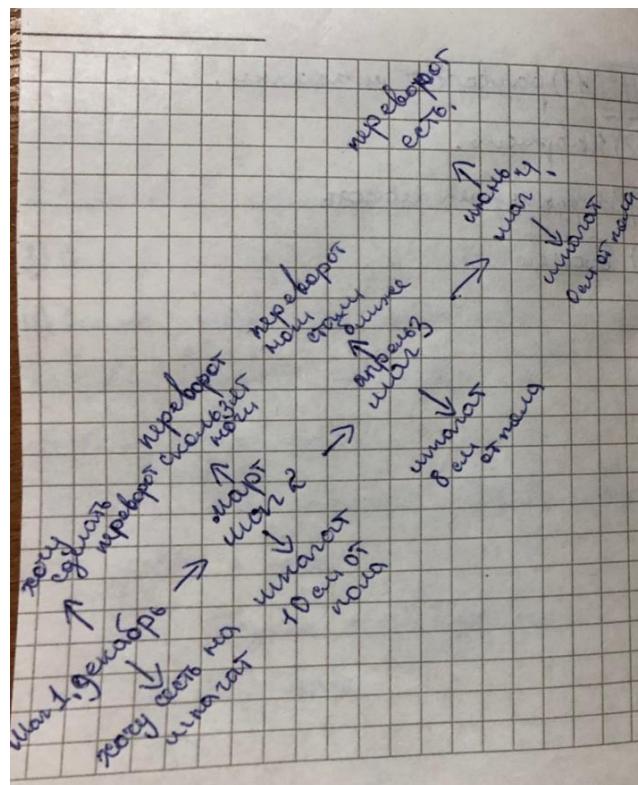 Шаг 1, декабрь
хочу
сделать
переворот
хочу сесть на
шпагат
март
шаг 2
переворот
скользят
ноги
шпагат
10 см от
пола
апрель
шаг 3
переворот
ноги стали
ближе
шпагат
8 см
от пола
июнь
шаг 4,
переворот
есть.
шпагат
0 см от пола